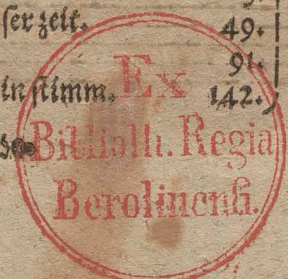 ser zeit. 49.
91.
in stimm. 142.
Ex
Biblioth. Regia
Berolinensi.